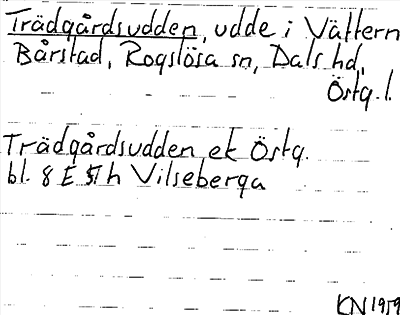 Trädgårdsudden, udde i Vättern
Bårstad, Rogslösa sn, Dals hd,
Östg. l.
Trädgårdsudden ek Östg.
bl. 8 E 5 h Vilseberga
KN 1959